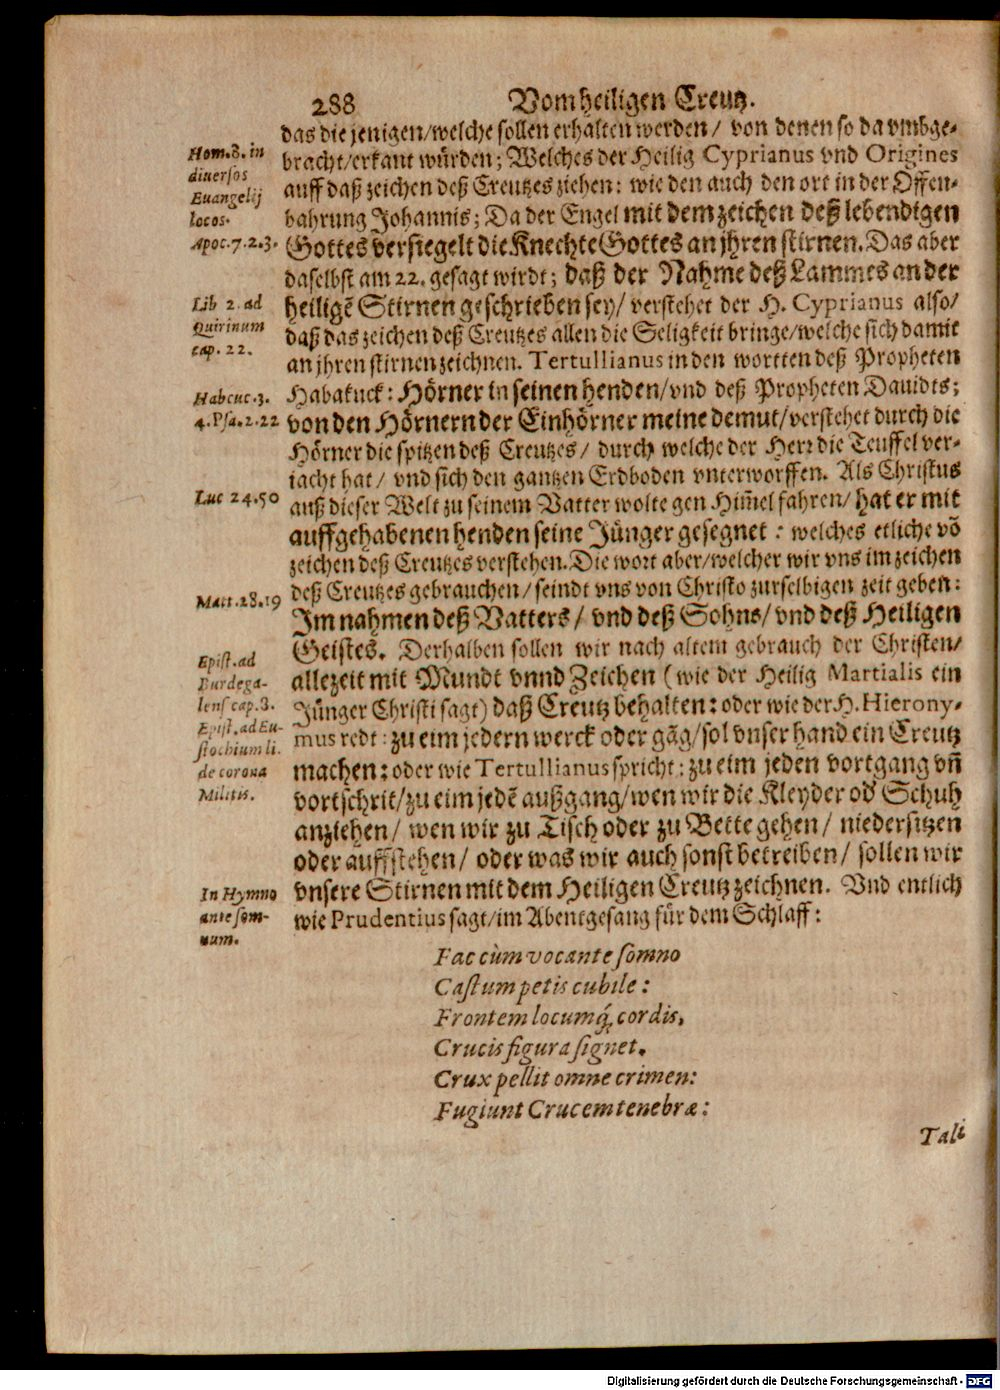 288 Vom heiligen Creutz.
das die jenigen/welche sollen erhalten werden/ von denen so da vmbge-
bracht/erkant würden; Welches der Heilig Cyprianus vnd Origines
auff daß zeichen deß Creutzes ziehen: wie den auch den ort in der Offen-
bahrung Johannis; Da der Engel mit dem zeichen deß lebendigen
Gottes versiegelt die Knechte Gottes an jhren stirnen. Das aber
daselbst am 22. gesagt wirdt; daß der Nahme deß Lammes an der
heiligē Stirnen geschrieben sey/ verstehet der H. Cyprianus also/
daß das zeichen deß Creutzes allen die Seligkeit bringe/welche sich damit
an jhren stirnen zeichnen. Tertullianus in den wortten deß Propheten
Habakuck: Hörner in seinen henden/vnd deß Propheten Dauidts;
von den Hörnern der Einhörner meine demut/verstehet durch die
Hörner die spitzen deß Creutzes/ durch welche der Herr die Teuffel ver-
jacht hat/ vnd sich den gantzen Erdboden vnterworffen. Als Christus
auß dieser Welt zu seinem Vatter wolte gen Him̄el fahren/ hat er mit
auffgehabenen henden seine Jünger gesegnet: welches etliche vō
zeichen deß Creutzes verstehen. Die wort aber/welcher wir vns im zeichen
deß Creutzes gebrauchen/ seindt vns von Christo zur selbigen zeit geben:
Im nahmen deß Vatters/ vnd deß Sohns/ vnd deß Heiligen
Geistes. Derhalben sollen wir nach altem gebrauch der Christen/
allezeit mit Mundt vnnd Zeichen (wie der Heilig Martialis ein
Jünger Christi sagt) daß Creutz behalten: oder wie der H. Hierony-
mus redt: zu eim jedern werck oder gāg/sol vnser hand ein Creutz
machen: oder wie Tertullianus spricht: zu eim jeden vortgang vn̄
vortschrit/zu eim jedē außgang/wen wir die Kleyder od' Schuh
anziehen/ wen wir zu Tisch oder zu Bette gehen/ niedersitzen
oder auffstehen/ oder was wir auch sonst betreiben/ sollen wir
vnsere Stirnen mit dem Heiligen Creutz zeichnen. Vnd entlich
wie Prudentius sagt/im Abentgesang für dem Schlaff:
Fac cùm vocante somno
Castum petis cubile:
Frontem locumq́; cordis,
Crucis figura signet.
Crux pellit omne crimen:
Fugiunt Crucem tenebræ:
Tali
Hom. 8. in
diuersos
Euangelij
locos.
Apoc. 7. 2. 3.
Lib 2. ad
Quirinum
cap. 22.
Habcuc. 3.
4. Psa. 2. 22
Luc 24. 50
Matt. 28. 19
Epist. ad
Burdega-
lens cap. 8.
Epist. ad Eu-
stochium li.
de corona
Militis.
In Hymno
ante som-
num.
Digitalisierung gefördert durch die Deutsche Forschungsgemeinschaft - DFG